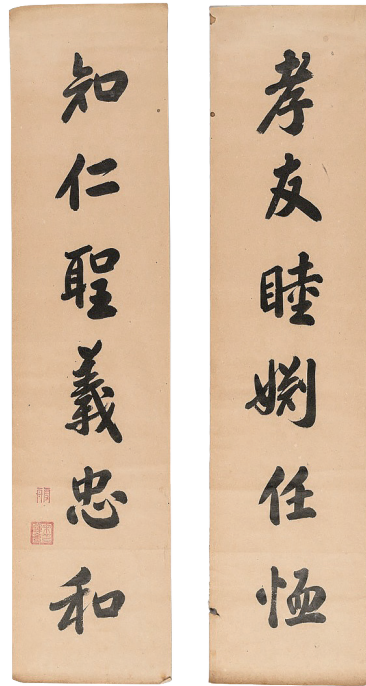 孝友睦婣任恤
知仁聖義忠和